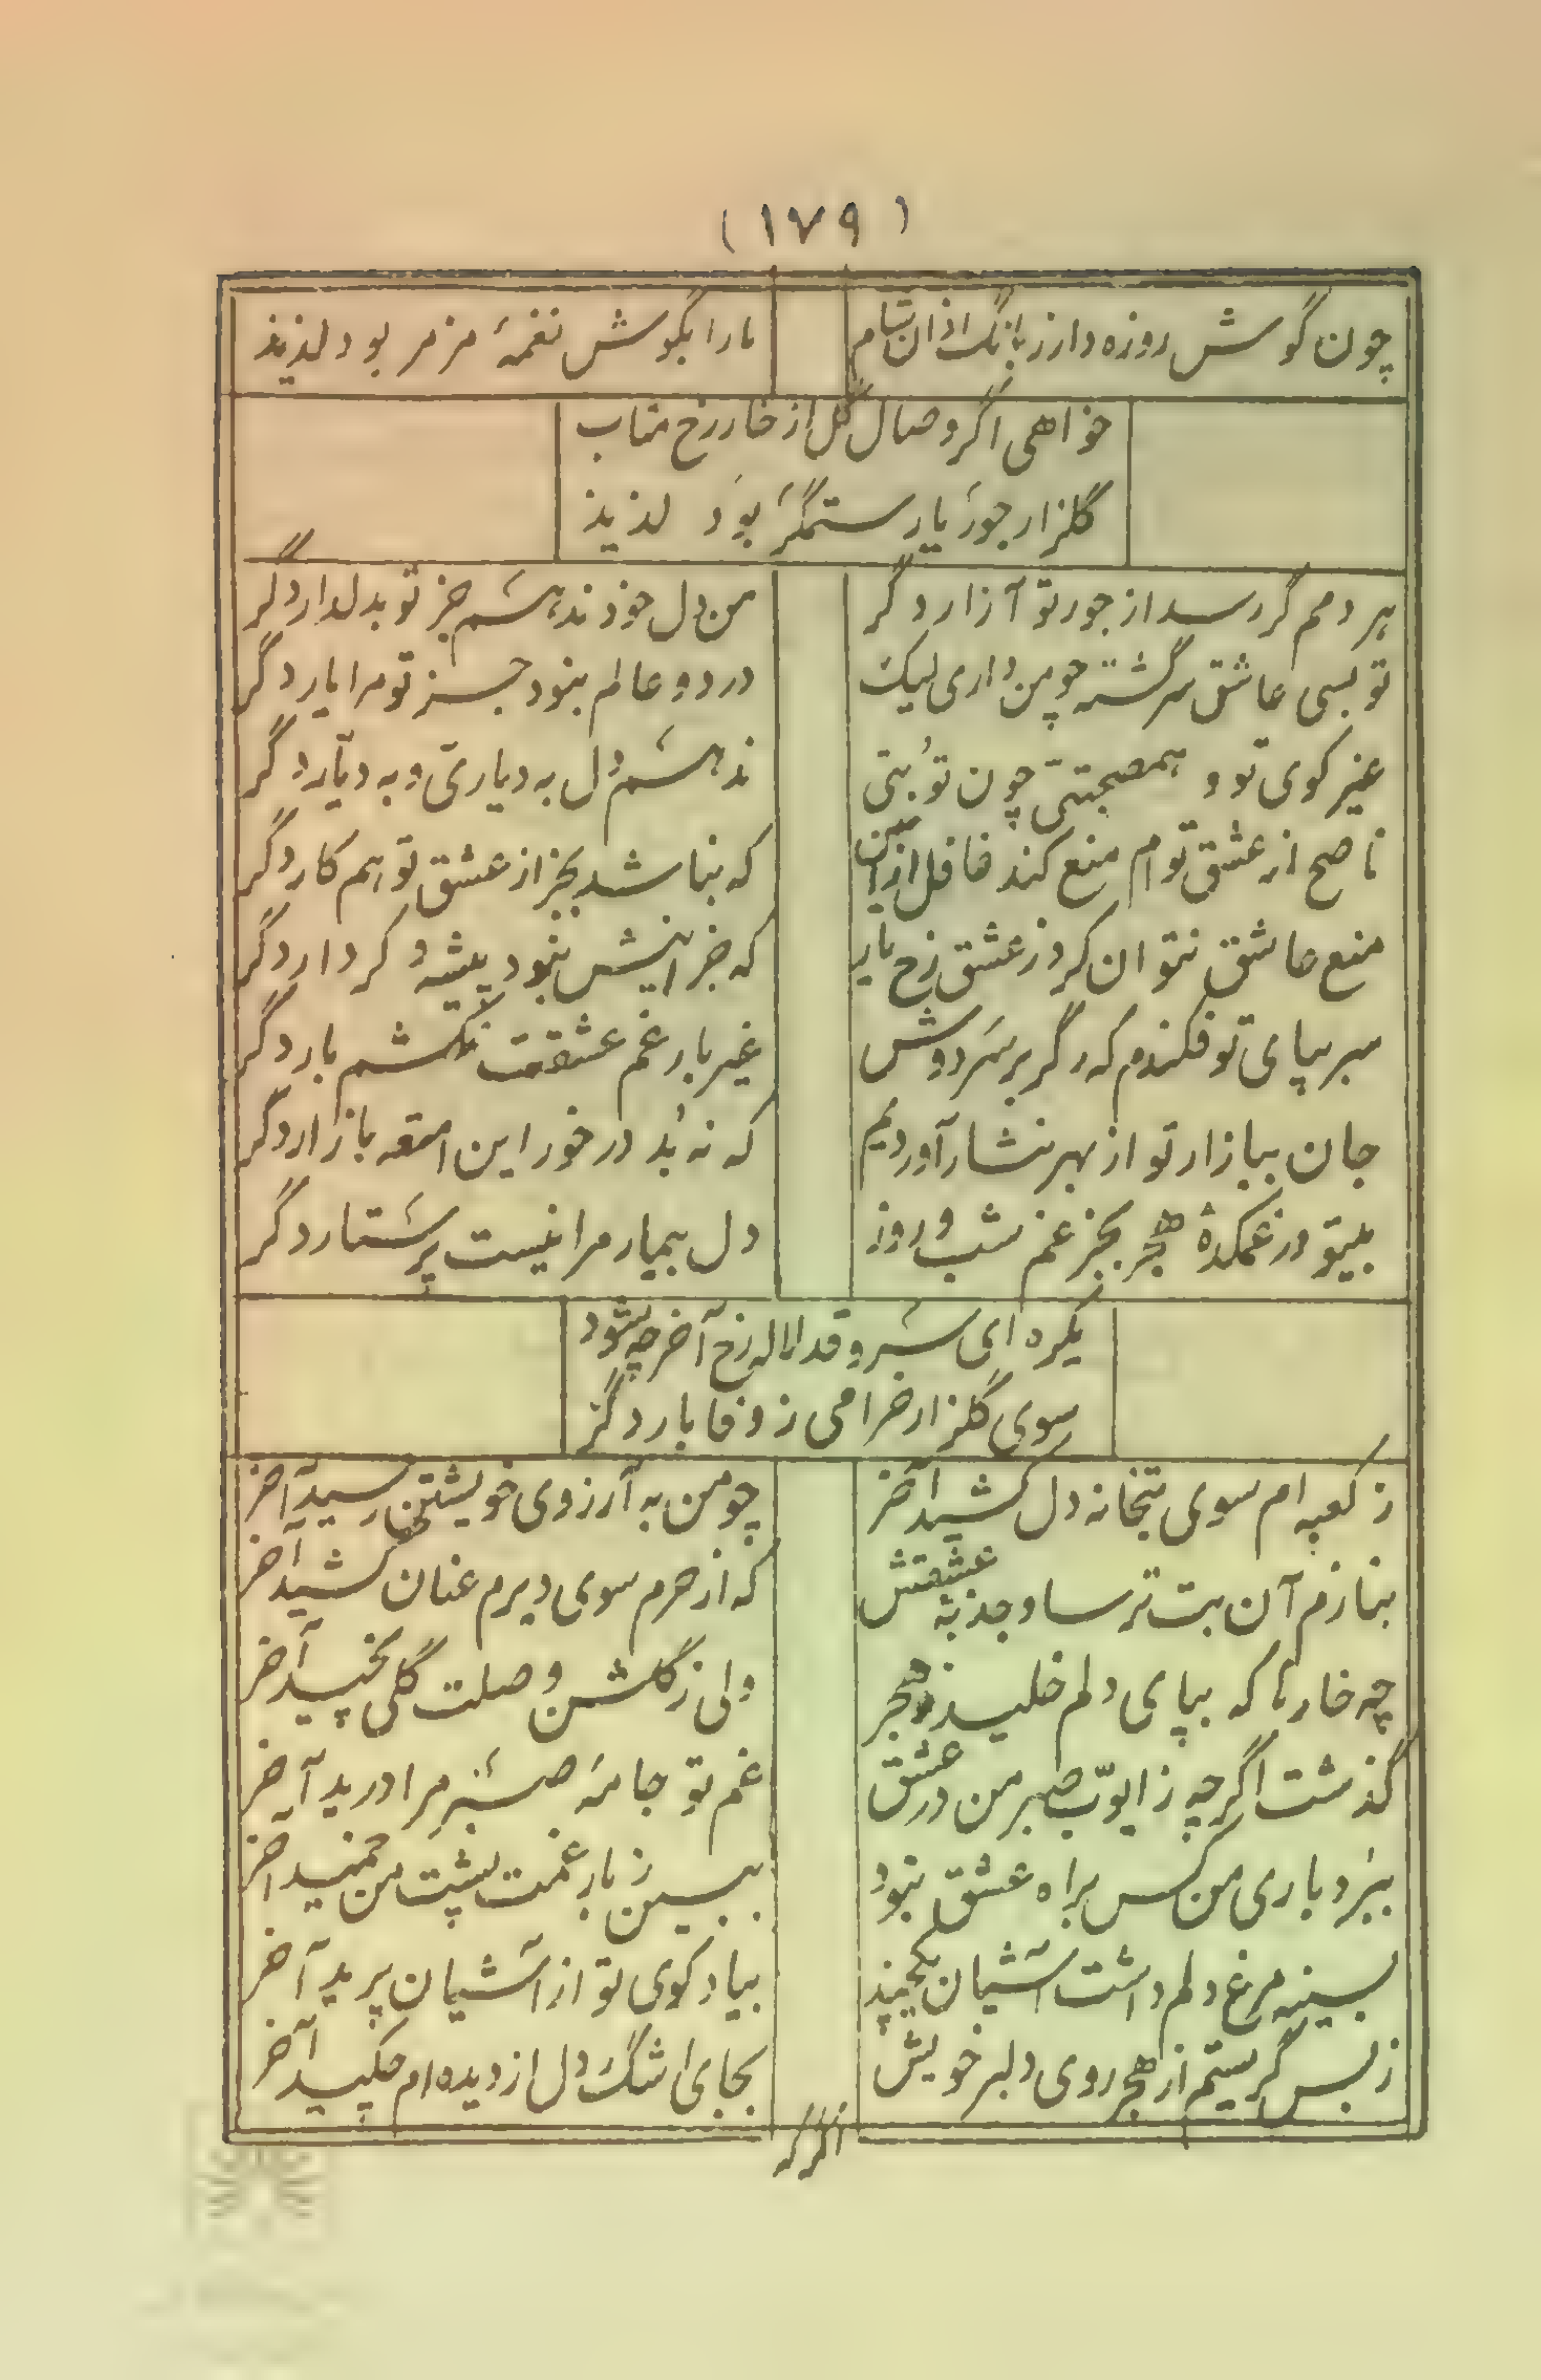 (۱۷۹)
چون گوش روزه دار ز بانگ اذان شام
مارا بگوش نغمهٔ مزمر بود لذیذ
خواهی اگر وصال گل از خار رخ متاب
گلزار جور یار ستمگر بود لذیذ
هر دمم گر رسد از جور تو آزار دگر
من دل خود ندهم جز تو بدلدار دگر
تو بسی عاشق سرگشته چو من داری لیک
در دو عالم نبود جز تو مرا یار دگر
غیر کوی تو و همصحبتی چون تو بتی
ندهم دل به دیاری و به دیار دگر
ناصح از عشق توام منع کند غافل ازین
که نباشد بجز از عشق تو هم کار دگر
منع عاشق نتوان کرد ز عشق رخ یار
که جز اینش نبود پیشه و کردار دگر
سر بپای تو فکندم که دگر بر سر دوش
غیر بار غم عشقت نکشم بار دگر
جان ببازار تو از بهر نثار آوردیم
که نه بُد در خور این امتعه بازار دگر
بیتو در غمکدهٔ هجر بجز غم شب و روز
دل بیمار مرا نیست پرستار دگر
یکره ای سرو قد لاله رخ آخر چه شود
سوی گلزار خرامی ز وفا بار دگر
ز کعبه ام سوی بتخانه دل کشید آخر
چو من به آرزوی خویشتن رسید آخر
بنازم آن بت ترسا و جذبهٔ عشقش
که از حرم سوی دیرم عنان کشید آخر
چه خارها که بپای دلم خلید ز هجر
ولی ز گلشن وصلت گلی نچید آخر
گذشت اگرچه ز ایوّب صبر من در عشق
غم تو جامهٔ صبر مرا درید آخر
ببردباری من کس براه عشق نبود
ببین ز بار غمت پشت من خمید آخر
بسینه مرغ دلم داشت آشیان یکچند
بیاد کوی تو از آشیان پرید آخر
ز بس گریستم از هجر روی دلبر خویش
بجای اشک دل از دیده ام چکید آخر
اگر که